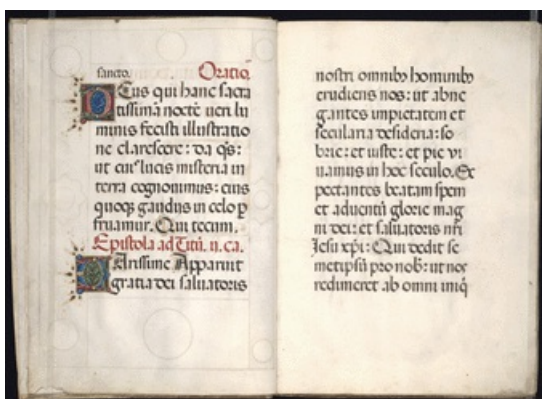 sancto. Oratio.
Deus qui hanc sacra
tissimā noctē veri lu
minis fecisti illustratio
ne clarescere: da q̄s:
ut cuiꝰ lucis misteria in
terra cognouimus: eius
quoqꝫ gaudiis in celo p̄
fruamur. Qui tecum.
Epistola ad Titū. ii. ca.
Karissime Apparuit
gratia dei saluatoris
nostri omnibꝫ hominibꝫ
erudiens nos: ut abne
gantes impietatem et
secularia desideria: so
brie: et iuste: et pie vi
uamus in hoc seculo. Ex
pectantes beatam spem
et aduentū glorie mag
ni dei: et saluatoris nr̄i
Jesu xp̄i: Qui dedit se
metipsū pro nob̄: ut nos
redimeret ab omni iniq̄